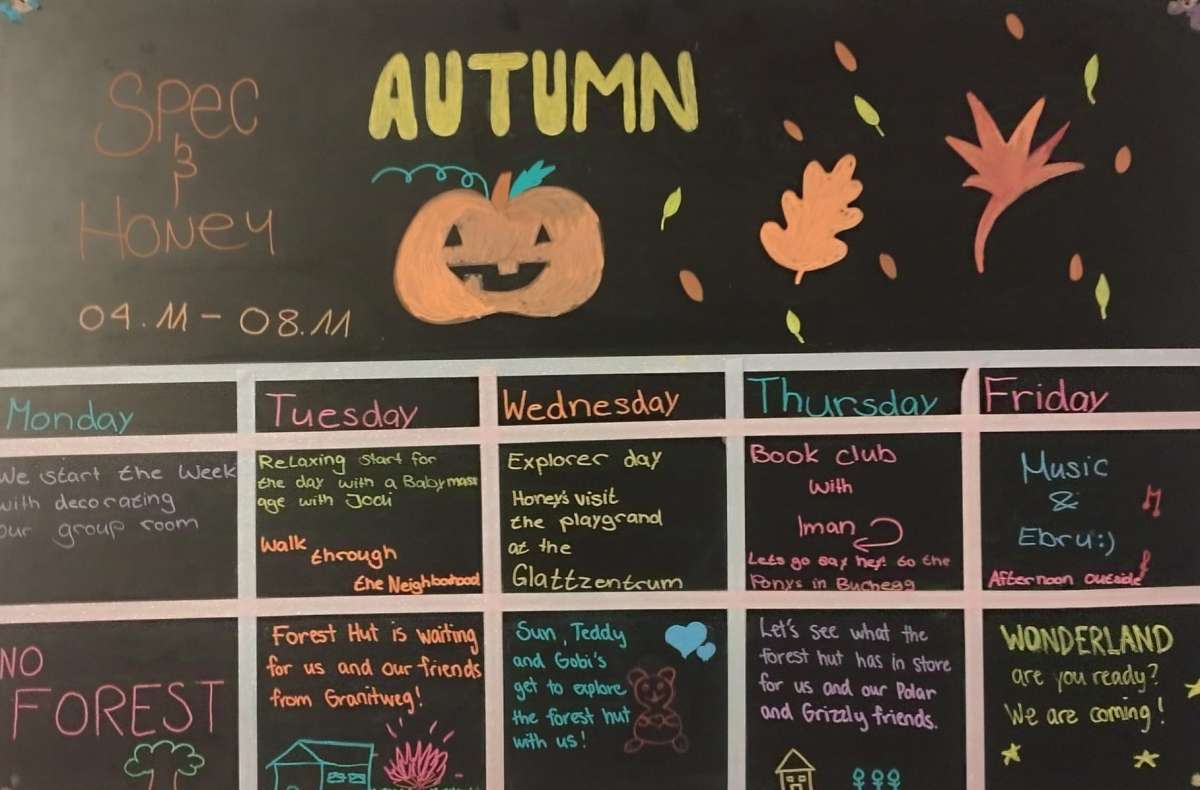 AUTUMN
Spec
&
Honey
04.11 - 08.11
Monday
Tuesday
Wednesday
Thursday
Friday
We start the Week
with decorating
our group room
Relaxing start for
the day with a Babymass
age with Jodi
Walk
through
the Neighborhood
Explorer day
Honey's visit
the playgrand
at the
Glattzentrum
Book club
with
Iman
Lets go say hey! to the
Ponys in Buchegg
Music
&
Ebru:)
Afternoon outside
NO
FOREST
Forest Hut is waiting
for us and our friends
from Granitweg!
Sun, Teddy
and Gobi's
get to explore
the forest hut
with us!
Let's see what the
forest hut has in store
for us and our Polar
and Grizzly friends.
WONDERLAND
are you ready?
We are coming!